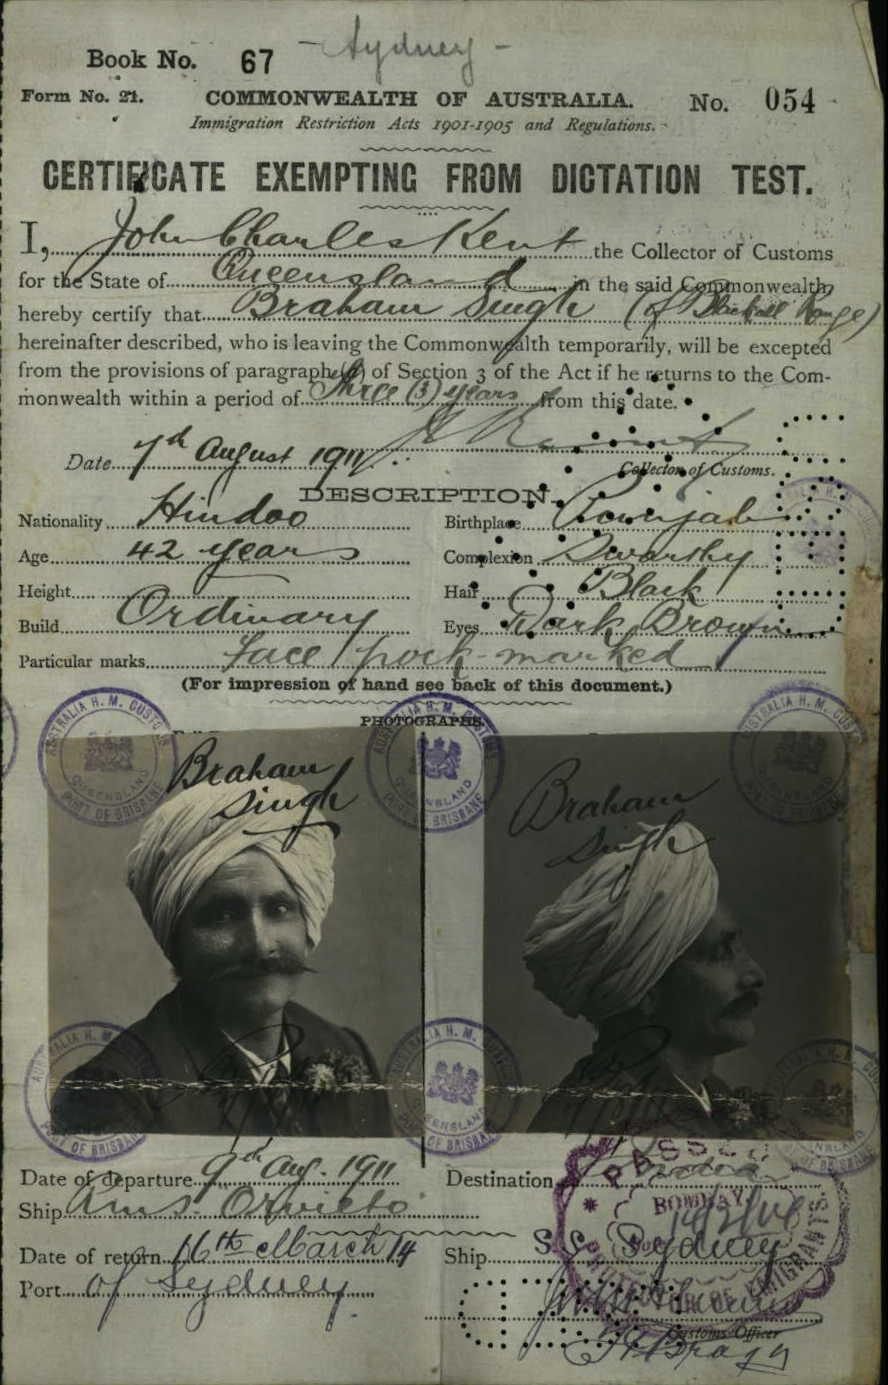 - Sydney -
Book No. 67
Form No. 21. COMMONWEALTH OF AUSTRALIA. No. 054
Immigration Restriction Acts 1901-1905 and Regulations.
CERTIFICATE EXEMPTING FROM DICTATION TEST.
I, John Charles Kent the Collector of Customs
for the State of Queensland in the said Commonwealth,
hereby certify that Braham Singh (of Blackall Range)
hereinafter described, who is leaving the Commonwealth temporarily, will be excepted
from the provisions of paragraph of Section 3 of the Act if he returns to the Com-
monwealth within a period of Three (3) years from this date.
Date 7th August 1911
Collector of Customs.
DESCRIPTION.
Nationality Hindoo Birthplace Punjab
Age 42 years Complexion Swarthy
Height Hair Black
Build Ordinary Eyes Dark Brown
Particular marks Face pock-marked
(For impression of hand see back of this document.)
PHOTOGRAPHS.
AUSTRALIA H. M. CUSTOMS
QUEENSLAND
PORT OF BRISBANE
Braham Singh
Braham Singh
Date of departure 9th Aug. 1911 Destination India
Ship R.M.S. Orvieto
BOMBAY
Date of return 16th March 14 Ship S.S. Sydney
Port of Sydney
Customs Officer